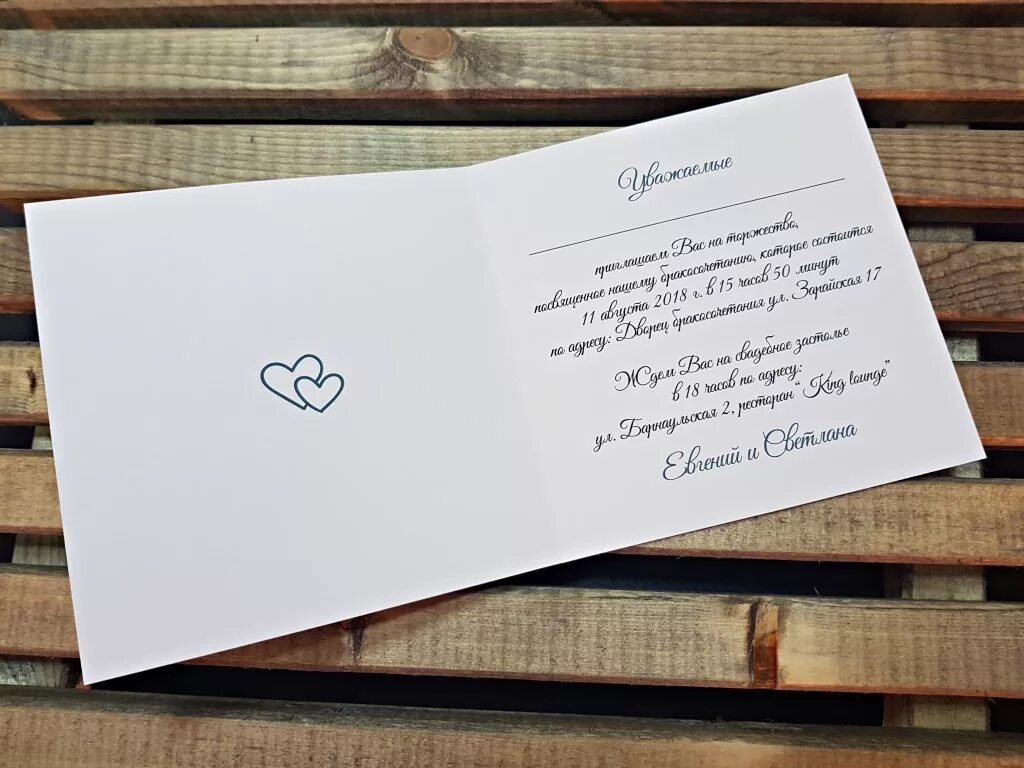 Уважаемые
приглашаем Вас на торжество,
посвященное нашему бракосочетанию, которое состоится
11 августа 2018 г. в 15 часов 50 минут
по адресу: Дворец бракосочетания ул. Зарайская 17
Ждем Вас на свадебное застолье
в 18 часов по адресу:
ул. Барнаульская 2, ресторан “ King lounge”
Евгений и Светлана